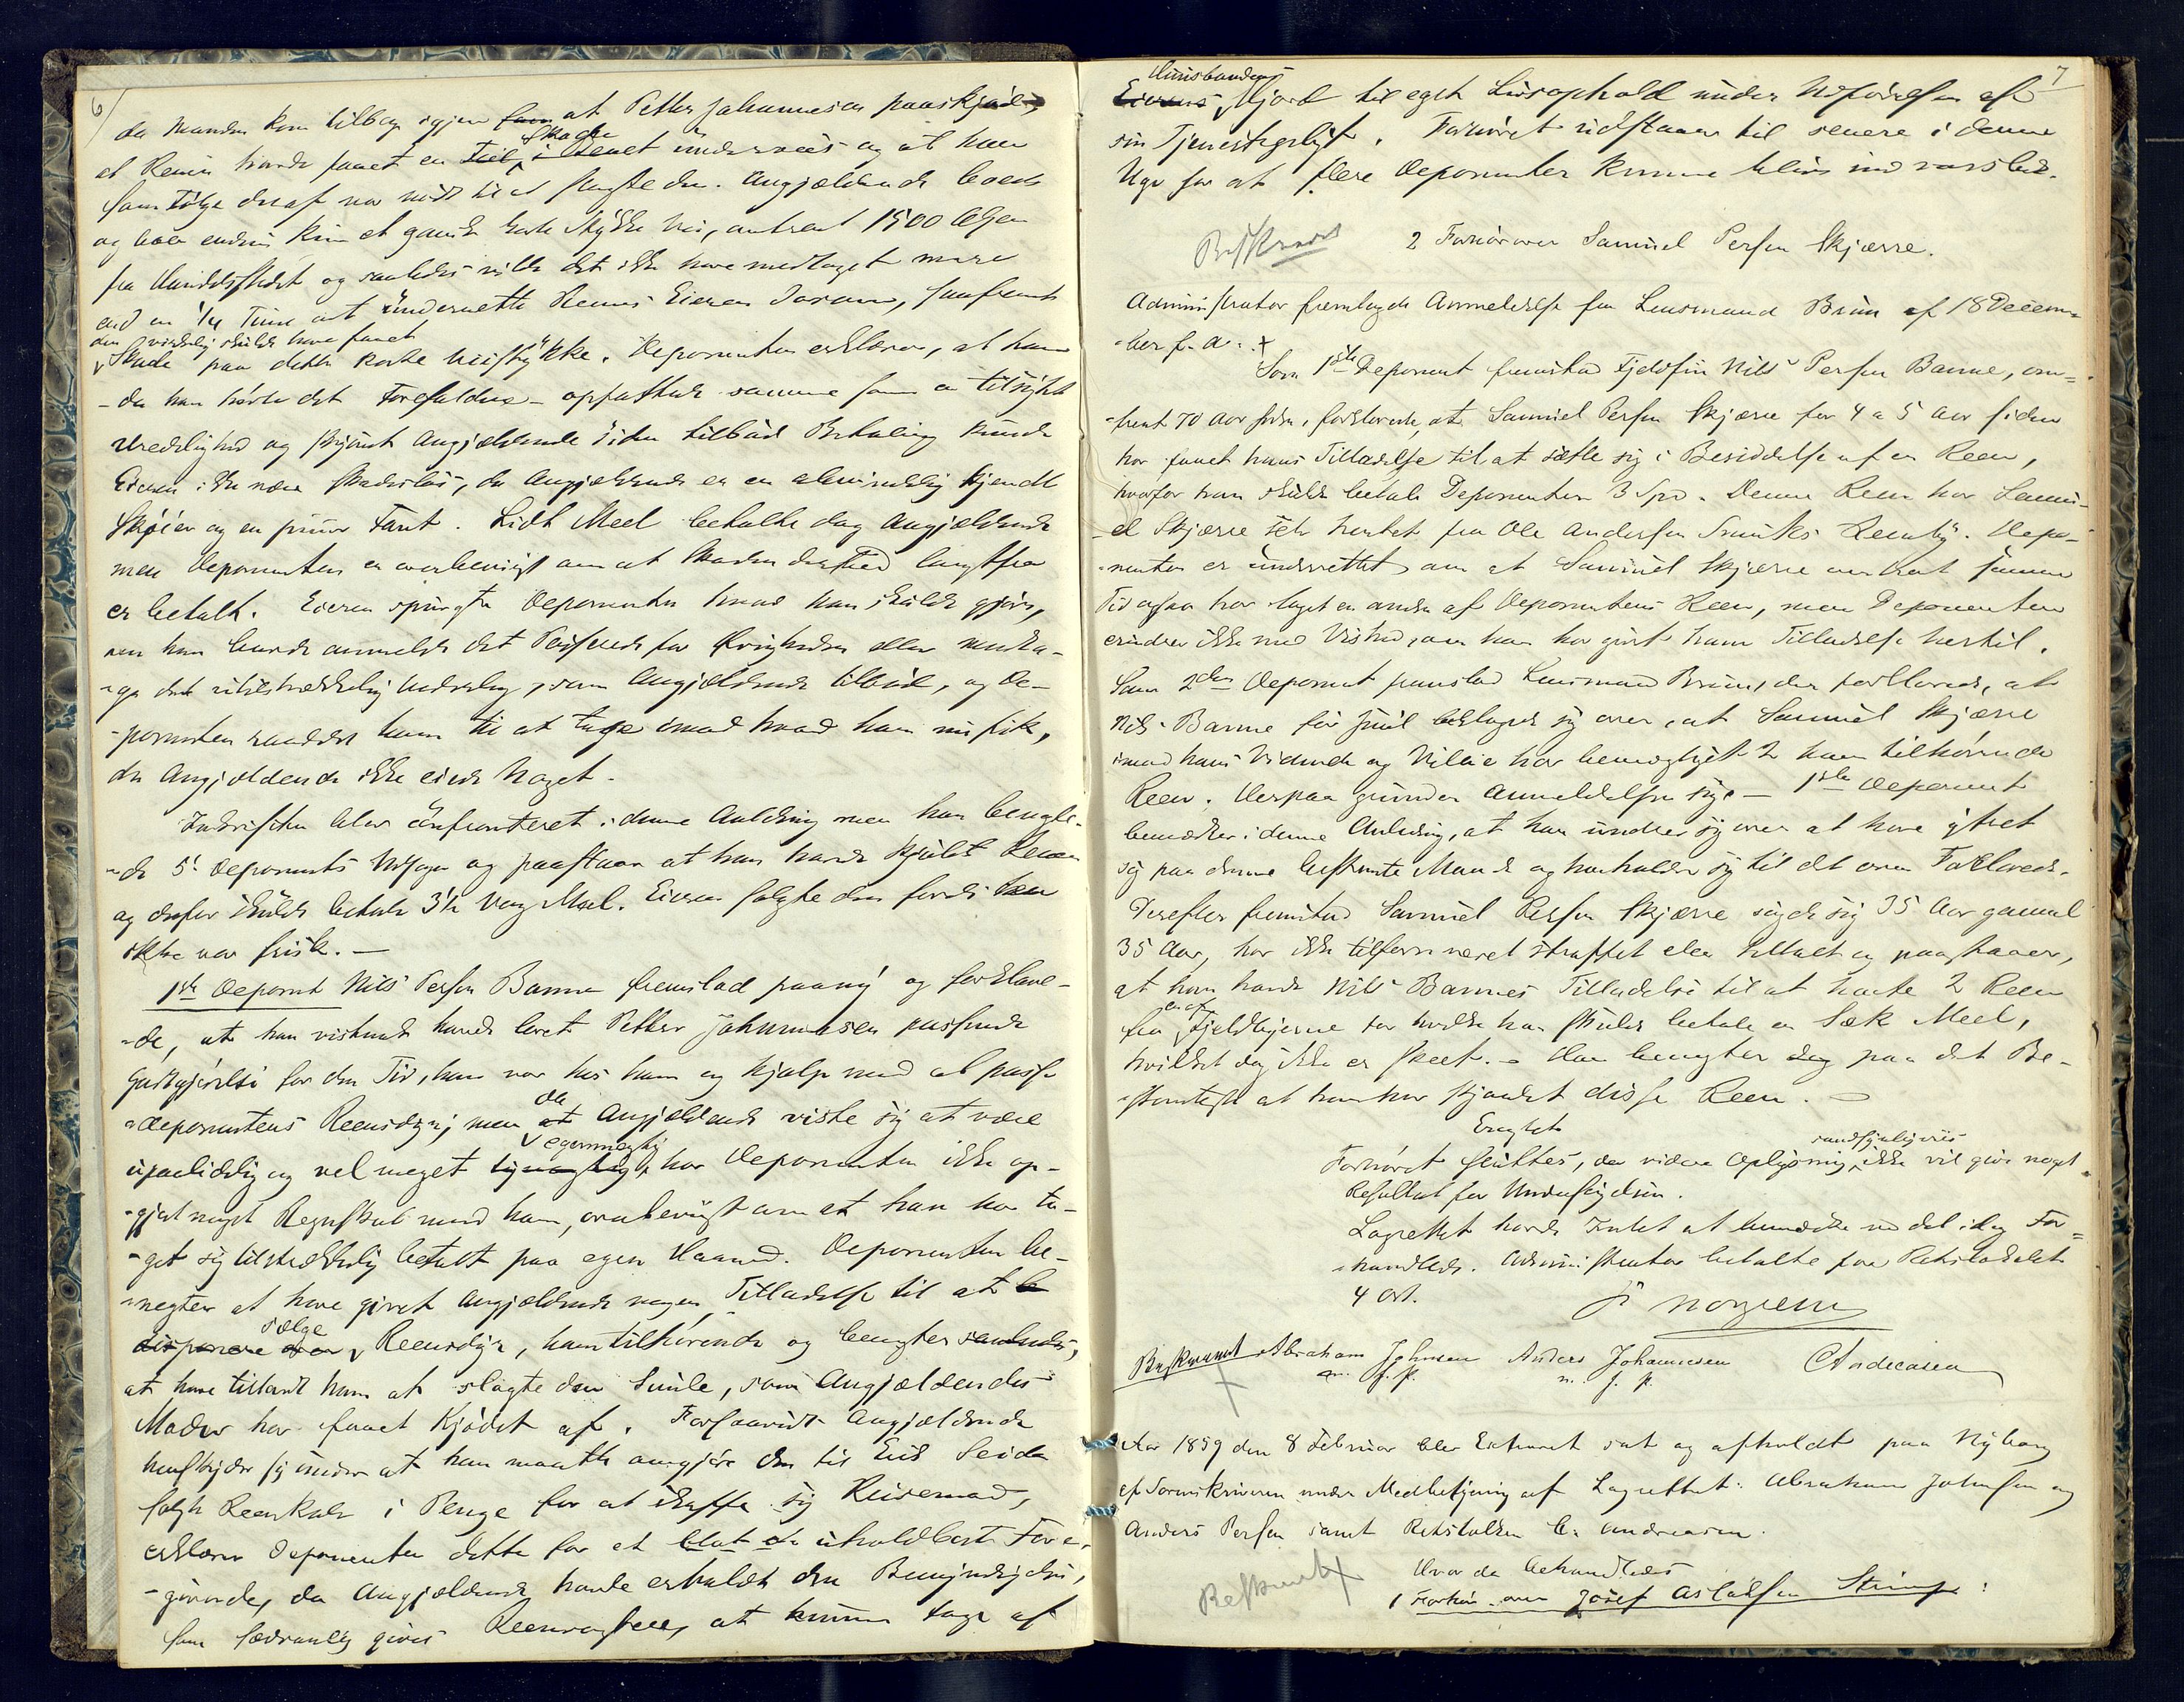 6/
da Manden kom tilbage igjen at Petter Johannesen paaskjød,
at Renen havde faaet en Skade i Benet underveis og at han
som Følge deraf var nødt til at slagte den. Angjældende boede
og boer endnu kun et ganske kort Stykke Vei, omtrent 1500 Alen
fra Handelsstedet og saaledes vilde det ikke have medtaget mere
end en 1/4 Time at underrette Renens Eier om Saken, saafremt
den virkelig skulde have faaet
Skade paa dette korte Veistykke. Deponenten erklærer, at han
- da han hørte det Forefaldne - opfattede samme som en tilsigtet
Uredelighed og skjønt Angjældende siden tilbød Betaling kunde
Eieren ikke være skadesløs, da Angjældende er en almindelig kjendt
Skøier og en simpel Fant. Lidt Meel betalte dog Angjældende
men Deponenten er overbeviist om at Skaden derfor langtfra
er betalt. Eieren spurgte Deponenten hvad han skulde gjøre,
om han burde anmelde det Passerede for Øvrigheden eller modta-
ge det utilstrækkelig Vederlag, som Angjældende tilbød, og De-
ponenten raadede ham til at tage imod hvad han nu fik,
da Angjældende ikke eiede Noget.
Inkvisiten blev confronteret i denne Anledning men han benægte-
de 5. Deponents Udsagn og paastaar at han havde kjøbt Renen
og derfor skulde betale 3 1/2 Vog Meel. Eieren solgte den fordi den
ikke var frisk. —
1ste Deponent Nils Persen Banne fremstod paany og forklare-
de, at han vistnok havde lovet Petter Johannesen passende
Godtgjørelse for den Tid, han var hos ham og hjalp med at passe
Deponentens Reensdyr; men da Angjældende viste sig at være
upaalidelig og vel meget egenmægtig, har Deponenten ikke op-
gjort noget Regnskab med ham, overbeviist om at han har ta-
get sig tilstrækkelig betalt paa egen Haand. Deponenten be-
negter at have givet Angjældende nogen Tilladelse til at
sælge Reensdyr, ham tilhørende og benegter saaledes,
at have tilladt ham at slagte den Simle, som Angjældendes
Moder har faaet Kjødet af. Forsaavidt Angjældende
undskylder sig med at han maatte omgjøre den til Eid Seida
solgte Reenkalv i Penge for at skaffe sig Reisemad,
erklærer Deponenten dette for et uholdbart Fore-
givende, da Angjældende havde erholdt den Bemyndigelse,
som sædvanlig gives Reenvogtere, at kunne tage af
7
Huusbondens
Hjord til eget Livsophold under Udførelsen af
sin Tjenestepligt. Forhøret udstaaer til senere i denne
Uge for at flere Deponenter kunne blive indvarslede.
Beskrevet 2 Forhør over Samuel Persen Skjærre.
Administrator fremlagde Anmeldelse fra Lensmand Brun af 18 Decem-
ber f. A. +
Som 1ste Deponent fremstod Fjeldfin Nils Persen Banne, om-
trent 70 Aar gl., forklarede, at Samuel Persen Skjærre for 4 a 5 Aar siden
har faaet hans Tilladelse til at sætte sig i Besiddelse af en Reen,
hvorfor han skulde betale Deponenten 3 Spd. Denne Reen har Samu-
el Skjærre selv hentet fra Ole Andersen Reenby. Depo-
nenten er underrettet om at Samuel Skjærre omtrent samme
Tid ogsaa har taget en anden af Deponentens Reen, men Deponenten
erindrer ikke med Vished, om han har givet ham Tilladelse hertil.
Som 2den Deponent fremstod Lensmand Brun, der forklarede, at
Nils Banne før Juul beklagede sig over, at Samuel Skjærre
imod hans Vidende og Villie har bemægtiget 2 ham tilhørende
Reen. Herpaa grunder Anmeldelsen sig. — 1ste Deponent
bemærker i denne Anledning, at han undrer sig over at have ytret
sig paa denne bestemte Maade og henholder sig til det oven Forklarede.
Derefter fremstod Samuel Persen Skjærre sagde sig 35 Aar gammel
35 Aar, har ikke tilforn været straffet eller tiltalt og paastaaer,
at han havde Nils Bannes Tilladelse til at hente 2 Reen
fra Fjeldbyerne for hvilke han skulde betale en Sæk Meel,
hvilket dog ikke er skeet. - Han benegter dog paa det Be-
stemteste at han har stjaalet disse Reen. —
Eragtet
Forhøret sluttes, da videre Oplysning sandsynligviis ikke vil give noget
Resultat for Undersøgelsen.
Lagrettet havde Intet at bemærke ved det idag For-
handlede. Administrator betalte for Retslokalet
4 Ort.
Beskrevet Abraham Johnsen Anders Johannesen CAndreasen
m. f. P. m. f. P.
Aar 1859 den 8 Februar blev Extraret sat og afholdt paa Nyborg
af Sorenskriveren under Medbetjening af Lagrettet: Abraham Johnsen og
Anders Persen samt Retstolken C. Andreasen.
Beskrevet Hvor da behandledes
1 Forhør over Josef Aslaksen :